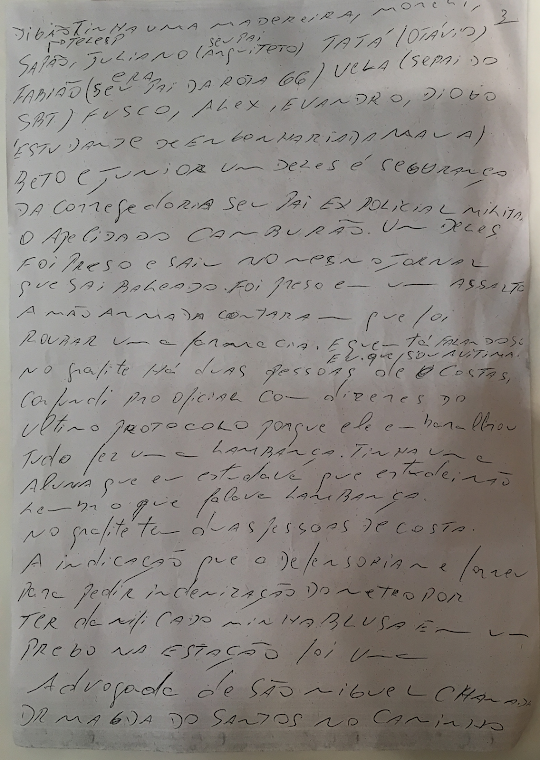 3
DIBIÃO TINHA UMA MADEREIRA,
TELESP SEU PAI
SAPÃO, JULIANO (ARQUITETO) TATÁ (OTÁVIO)
ERA
FABIÃO (SEU PAI DA ROTA 66) VELA (SEPAI DO
SBT) FUSCO, ALEX, EVANDRO, DIOGO
(ESTUDANTE DE ENGENHARIA DA MAUA)
BETO E JUNIOR UM DELES É SEGURANÇA
DA CORREGEDORIA SEU PAI EX POLICIAL MILITAR
O APELIDADO CAMBURÃO. UM DELES
FOI PRESO E SAIU NO MESMO JORNAL
QUE SAI BALEADO. FOI PRESO EM UM ASSALTO
A MÃO ARMADA CONTARAM QUE FOI
ROUBAR UMA FARMACIA. E QUEM TÁ FALANDO SOU
EU, QUE SOU A VITIMA.
NO GRAFITE HÁ DUAS PESSOAS DE COSTAS,
CONFUNDI PRO OFICIAL COM DIZERES DO
ULTIMO PROTOCOLO PORQUE ELE EMBARALHOU
TUDO FEZ UMA LAMBANÇA. TINHA UMA
ALUNA QUE EU ESTUDAVA QUE ESTUDEI NÃO
LEMBRO QUE FALAVA LAMBANÇA.
NO GRAFITE TEM DUAS PESSOAS DE COSTA.
A INDICAÇÃO QUE O DEFENSORIA ME FORNEU
PARA PEDIR INDENIZAÇÃO DO METRO POR
TER DANIFICADO MINHA BLUSA EM UM
PREGO NA ESTAÇÃO FOI UMA
ADVOGADA DE SÃO MIGUEL CHAMADA
DR MAGDA DO SANTOS NO CAMINHO